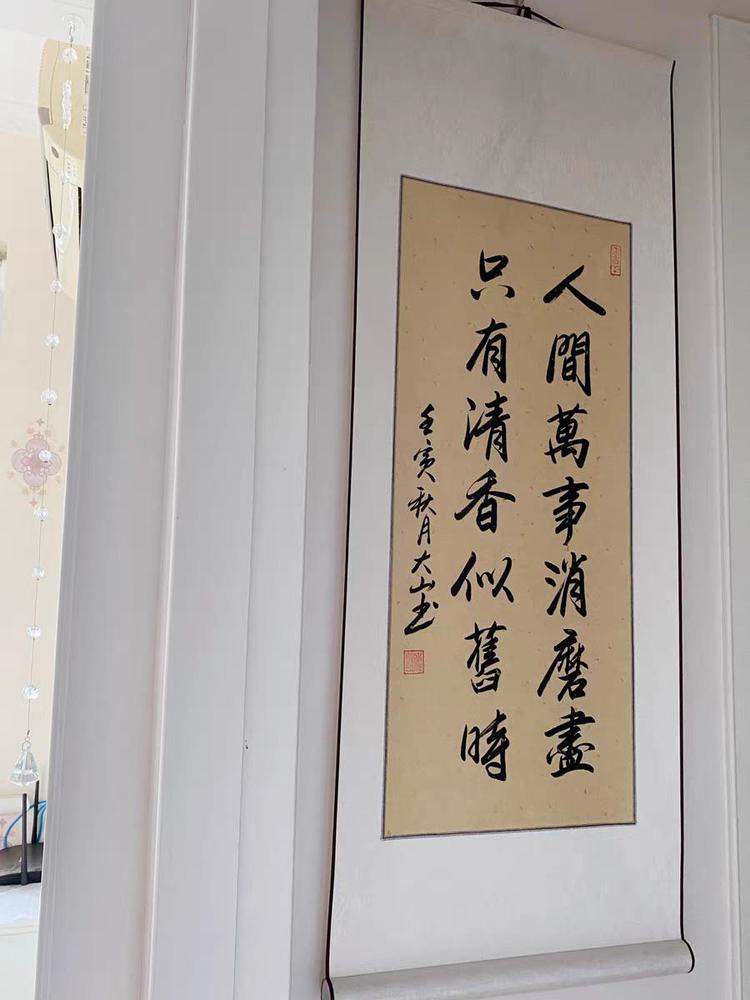 人間萬事消磨盡
只有清香似舊時
壬寅秋月大山書